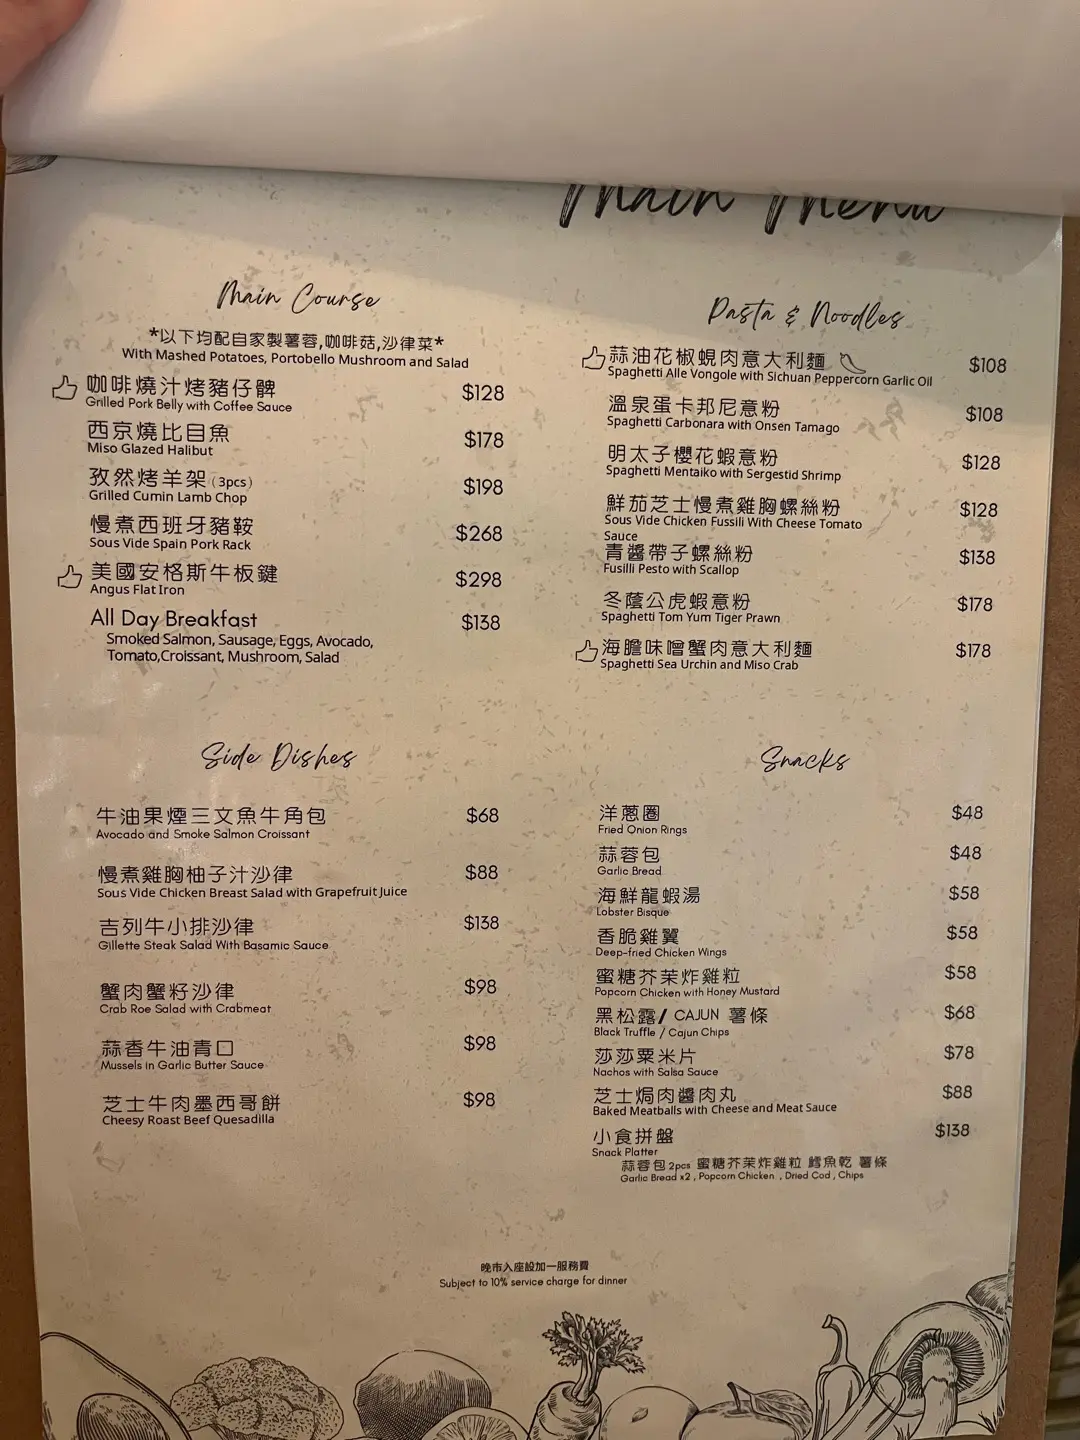 Main Menu
Main Course
*以下均配自家製薯蓉,咖啡菇,沙律菜*
With Mashed Potatoes, Portobello Mushroom and Salad
咖啡燒汁烤豬仔髀 $128
Grilled Pork Belly with Coffee Sauce
西京燒比目魚 $178
Miso Glazed Halibut
孜然烤羊架 (3pcs) $198
Grilled Cumin Lamb Chop
慢煮西班牙豬鞍 $268
Sous Vide Spain Pork Rack
美國安格斯牛板鍵 $298
Angus Flat Iron
All Day Breakfast $138
Smoked Salmon, Sausage, Eggs, Avocado,
Tomato,Croissant, Mushroom, Salad
Pasta & Noodles
蒜油花椒蜆肉意大利麵 $108
Spaghetti Alle Vongole with Sichuan Peppercorn Garlic Oil
溫泉蛋卡邦尼意粉 $108
Spaghetti Carbonara with Onsen Tamago
明太子櫻花蝦意粉 $128
Spaghetti Mentaiko with Sergestid Shrimp
鮮茄芝士慢煮雞胸螺絲粉 $128
Sous Vide Chicken Fussili With Cheese Tomato
Sauce
青醬帶子螺絲粉 $138
Fusilli Pesto with Scallop
冬蔭公虎蝦意粉 $178
Spaghetti Tom Yum Tiger Prawn
海膽味噌蟹肉意大利麵 $178
Spaghetti Sea Urchin and Miso Crab
Side Dishes
牛油果煙三文魚牛角包 $68
Avocado and Smoke Salmon Croissant
慢煮雞胸柚子汁沙律 $88
Sous Vide Chicken Breast Salad with Grapefruit Juice
吉列牛小排沙律 $138
Gillette Steak Salad With Basamic Sauce
蟹肉蟹籽沙律 $98
Crab Roe Salad with Crabmeat
蒜香牛油青口 $98
Mussels in Garlic Butter Sauce
芝士牛肉墨西哥餅 $98
Cheesy Roast Beef Quesadilla
Snacks
洋蔥圈 $48
Fried Onion Rings
蒜蓉包 $48
Garlic Bread
海鮮龍蝦湯 $58
Lobster Bisque
香脆雞翼 $58
Deep-fried Chicken Wings
蜜糖芥茉炸雞粒 $58
Popcorn Chicken with Honey Mustard
黑松露/ CAJUN 薯條 $68
Black Truffle / Cajun Chips
莎莎粟米片 $78
Nachos with Salsa Sauce
芝士焗肉醬肉丸 $88
Baked Meatballs with Cheese and Meat Sauce
小食拼盤 $138
Snack Platter
蒜蓉包2pcs 蜜糖芥茉炸雞粒 鱈魚乾 薯條
Garlic Bread x2 , Popcorn Chicken , Dried Cod , Chips
晚市入座設加一服務費
Subject to 10% service charge for dinner